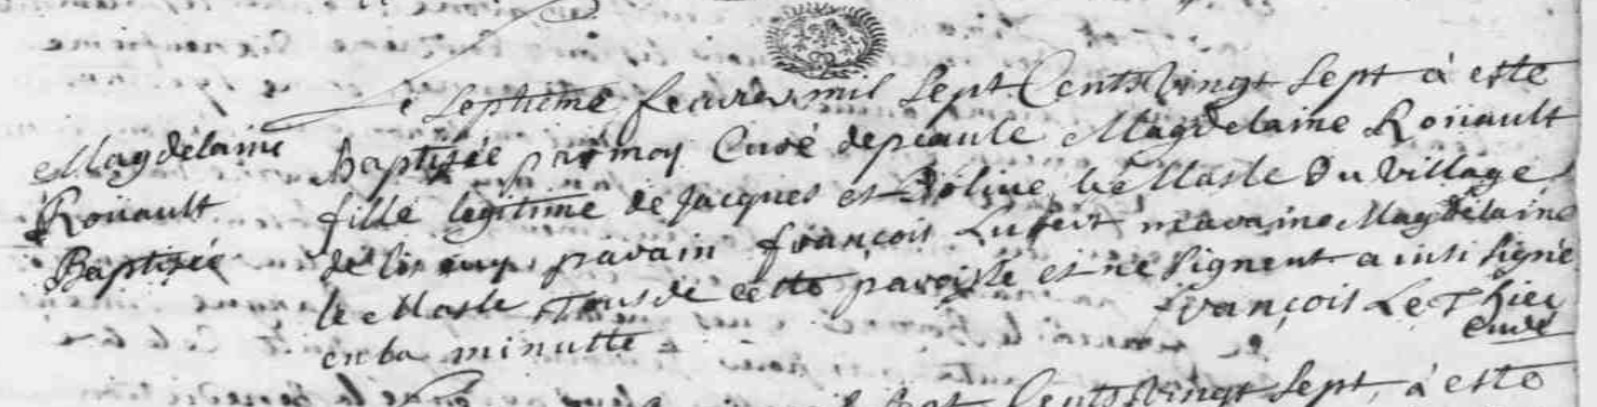 Le septieme fevrier mil sept cents vingt sept a este
Magdelaine
Baptizée par moy Curé de peaule Magdelaine Roüault
Roüault
fille legitime de Jacques et D'olive le Masle du village
Baptizée
parain françois maraine Magdelaine
le Masle tous de cette paroisse et ne signent ainsi signé
en la minutte françois Le Thiec
curé
cents vingt sept, a este